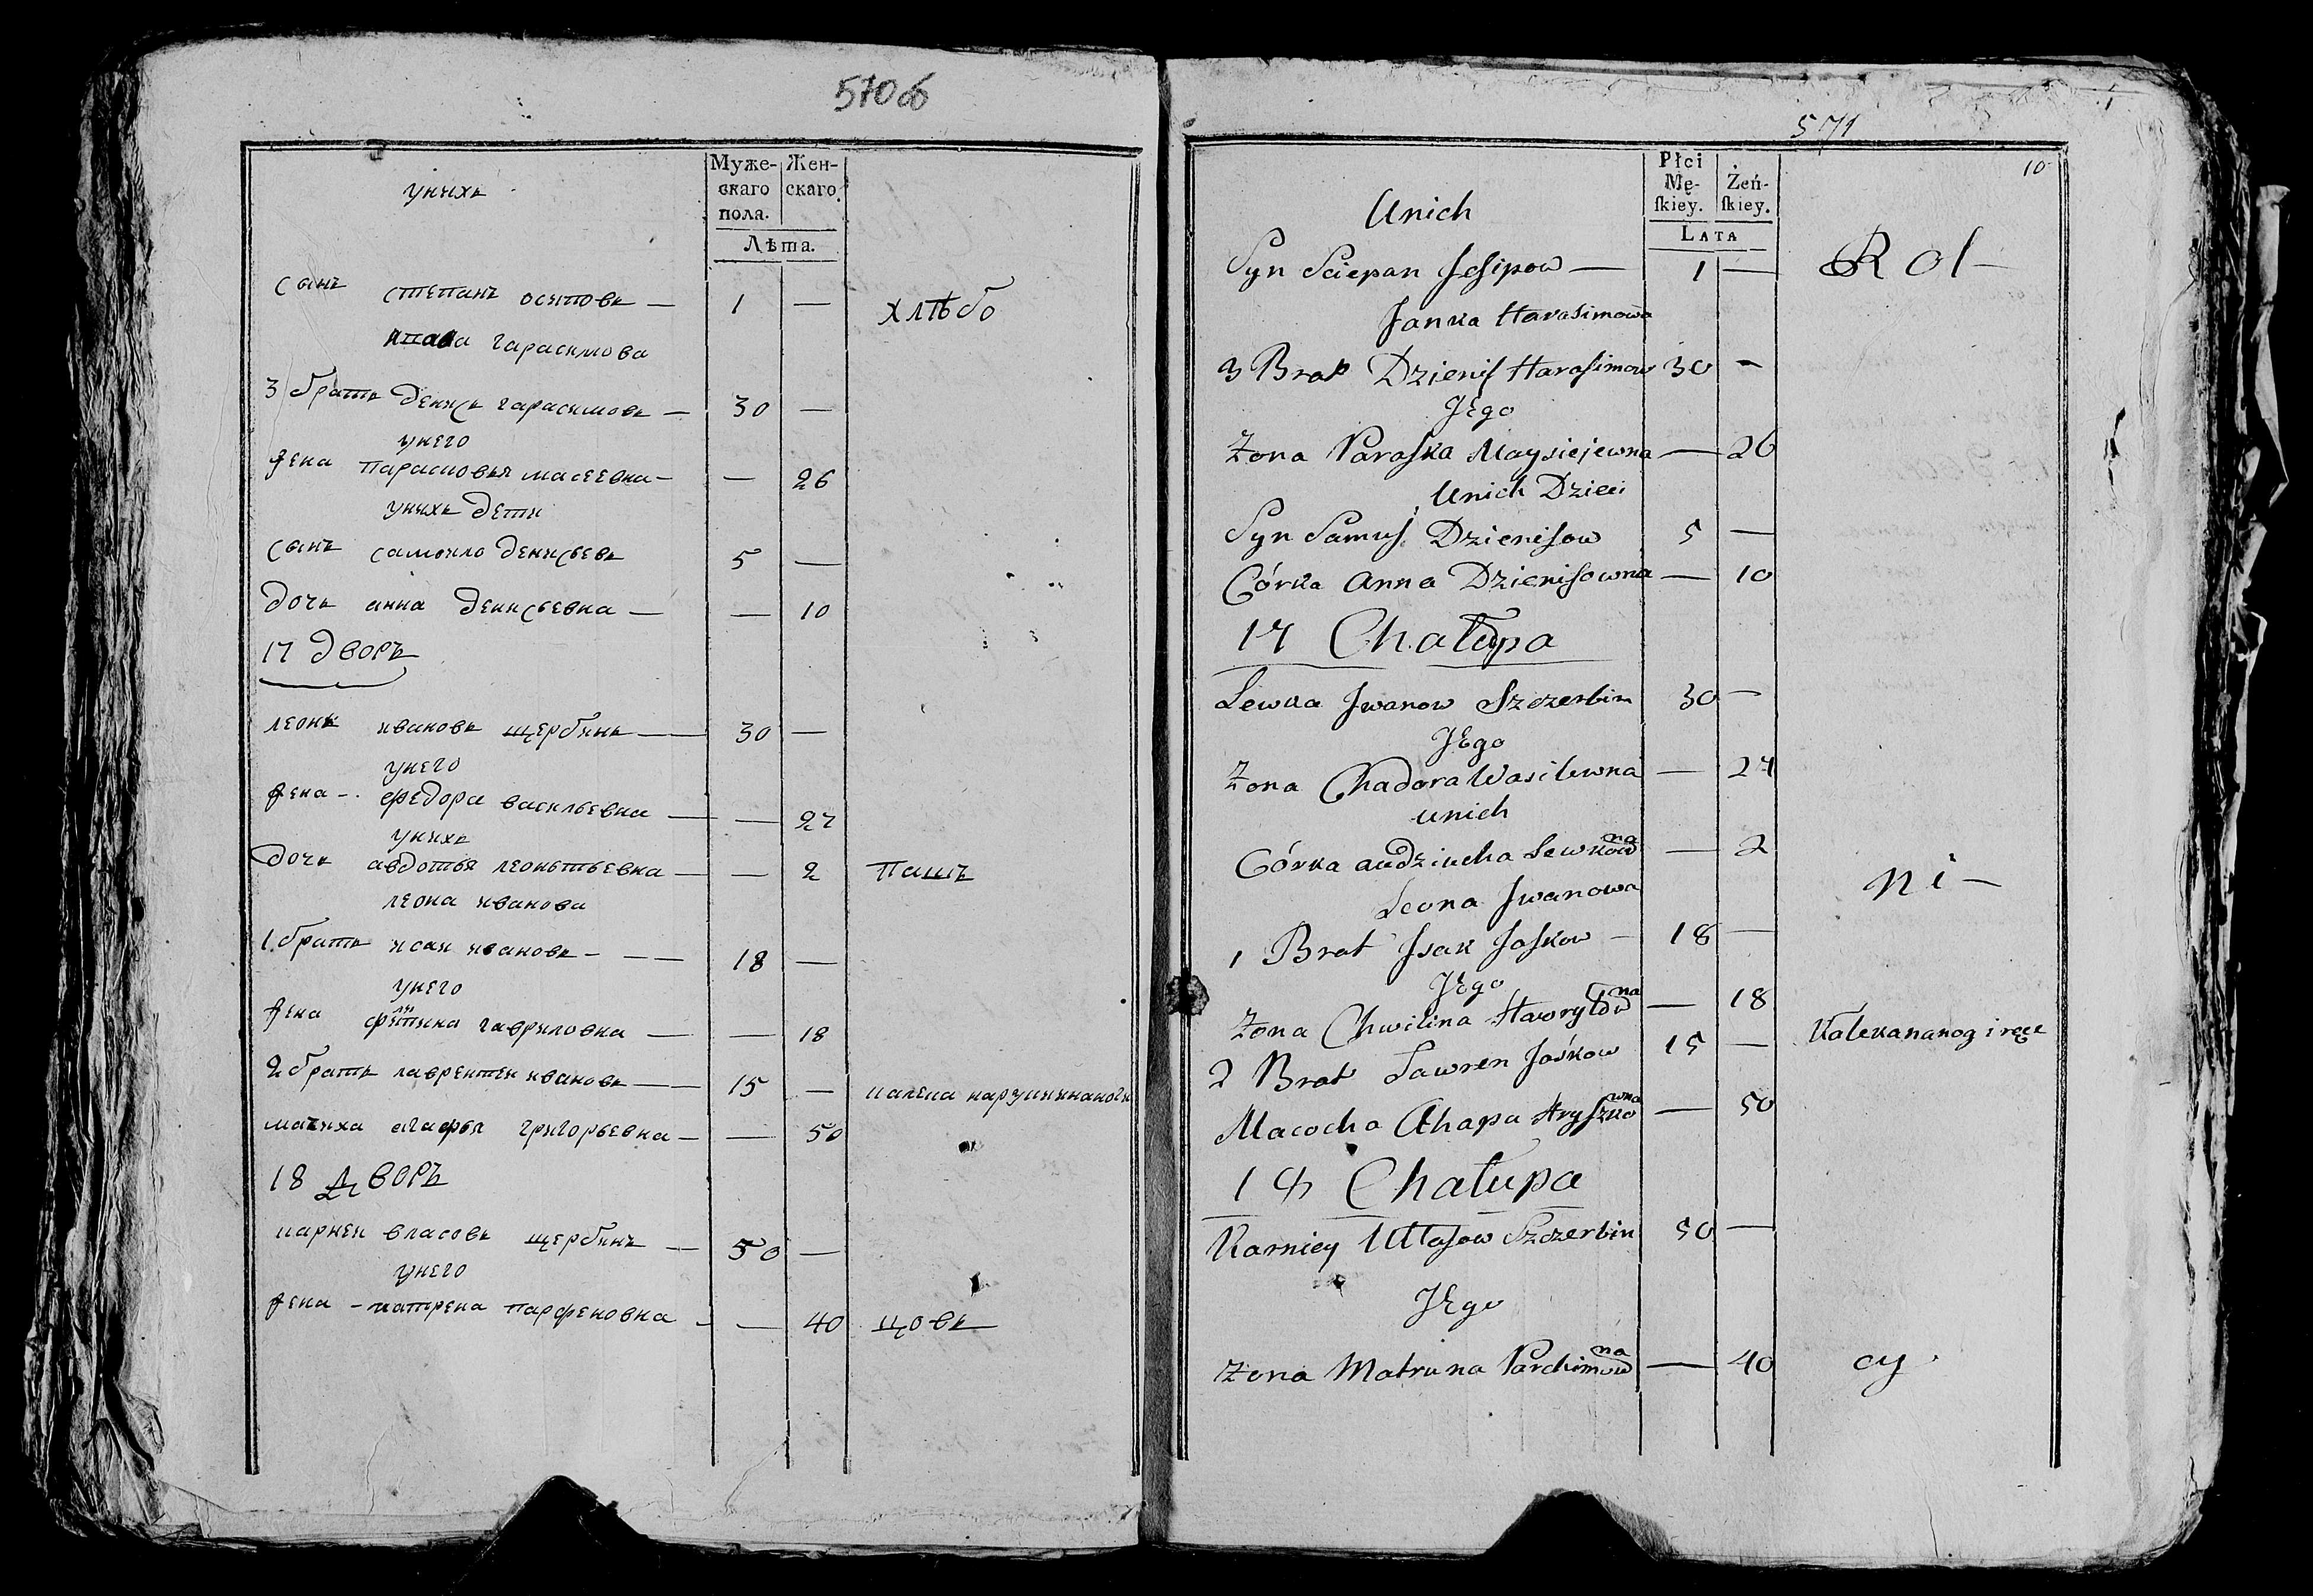 570об
унихъ
Муже-
скаго
пола.
Жен-
скаго.
Лѣта.
сынъ степанъ осиповъ — 1 — хлѣбо
гарасимова
3 братъ денисъ гарасимовъ — 30 —
унего
жена парасковья масеевна — — 26
унихъ дети
сынъ самойло денисьевъ 5 —
дочь анна денисьевна — — 10
17 дворъ
леонъ ивановъ щербинъ — 30 —
унего
жена — федора васильевна — — 27
унихъ
дочь авдотья леонътьевна — — 2 пашъ
леона иванова
1. братъ исаи ивановъ — — — 18 —
унего
жена гавриловна — — 18
2 братъ лаврентеи ивановъ — 15 — калека нарукиинаноги
мачиха агафья григорьевна — — 50
18 дворъ
карнеи власовъ щербинъ — 50 —
унего
жена — матрена парфеновна — — 40 цовъ
571
10
Unich
Płci
Mę-
ſkiey.
Żeń-
ſkiey.
LATA
Syn Sciepan Jesipow — 1 — Rol —
Janka Harasimowa
3 Brat Dzienis Harasimow 30 —
JEgo
Żona Paraska Maysiejewna — 26
Unich Dzieci
Syn Samuś Dzienisow 5 —
Córka Anna Dzienisowna — 10
17 Chałupa
Lewka Jwanow Szczerbin 30 —
JEgo
Żona Chadora Wasilewna — 27
unich
Córka audziucha Lewkowna — 2
Leona Jwanowa
ni —
1 Brat Jsak Jaskow — 18 —
JEgo
Żona Chwilina Hawryłowna — 18
2 Brat Lawren Jaśkow 15 — Kalekananog i ręce
Macocha Ahapa Hryszkowna — 50
18 Chałupa
Karniey Ułasow Szczerbin 50 —
JEgo
Żona Matruna Parchimowna — 40 cy